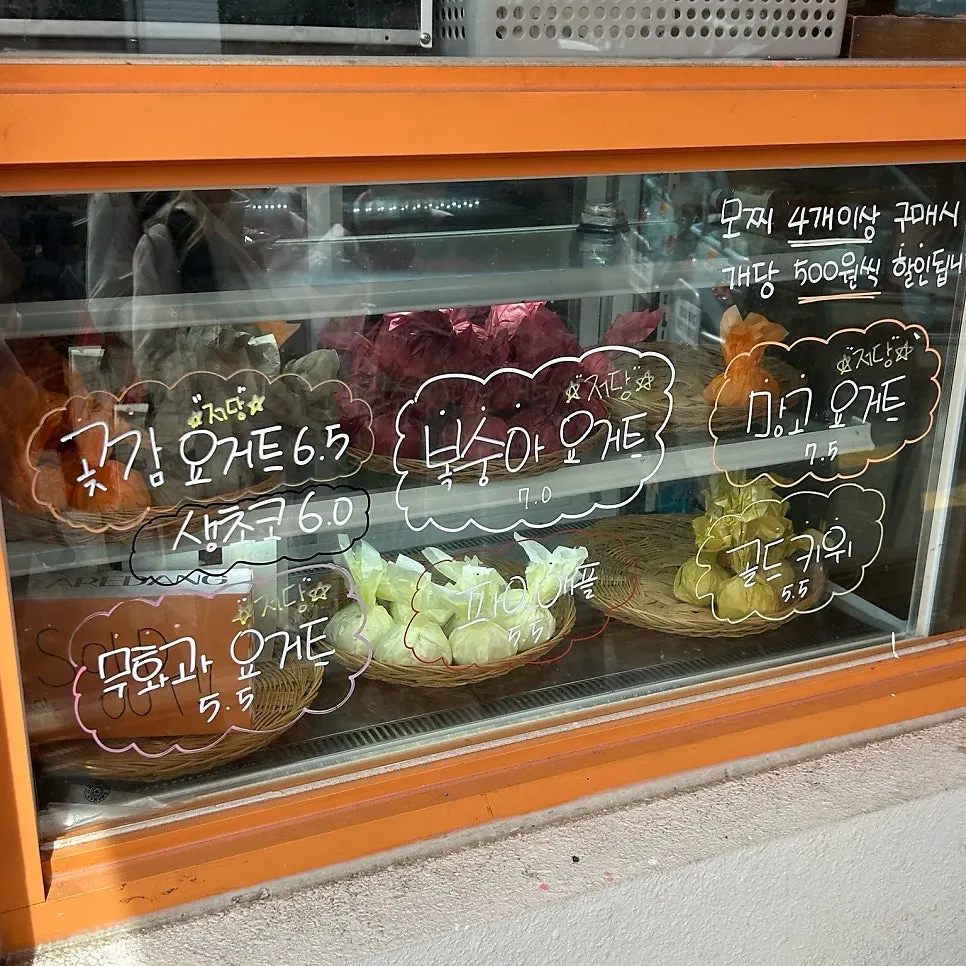 모찌 4개이상 구매시
개당 500원씩 할인됩니
저당
곶감 요거트 6.5
생초코 6.0
저당
복숭아 요거트
7.0
저당
망고 요거트
7.5
저당
무화과 요거트
5.5
파인애플
5.5
골드키위
5.5
SOLD
OUT